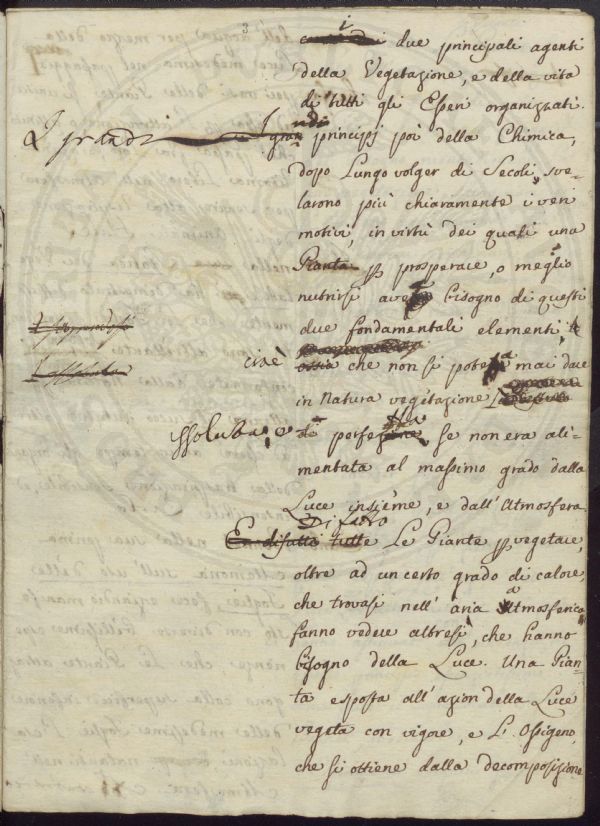 3
i due principali agenti
della Vegetazione, e della vita
di tutti gli Esseri organizzati.
I grandi
I grandi principj poi della Chimica,
dopo Lungo volger di Secoli, sve-
larono più chiaramente i veri
motivi, in virtù dei quali una
Pianta p prosperare, o meglio
nutrirsi avea bisogno di questi
due fondamentali elementi
cioè
che non si potea mai dare
in Natura vegetazione
ssoluta, o
perfetta se non era ali-
mentata al massimo grado dalla
Luce insieme, e dall'Atmosfera
Di fatto
En difatti tutte Le Piante p vegetare,
oltre ad un certo grado di calore,
che trovasi nell'aria Atmosferica
fanno vedere altresì, che hanno
bisogno della Luce. Una Pian-
ta esposta all'azion della Luce
vegeta con vigore, e L'Ossigeno,
che si ottiene dalla decomposizione